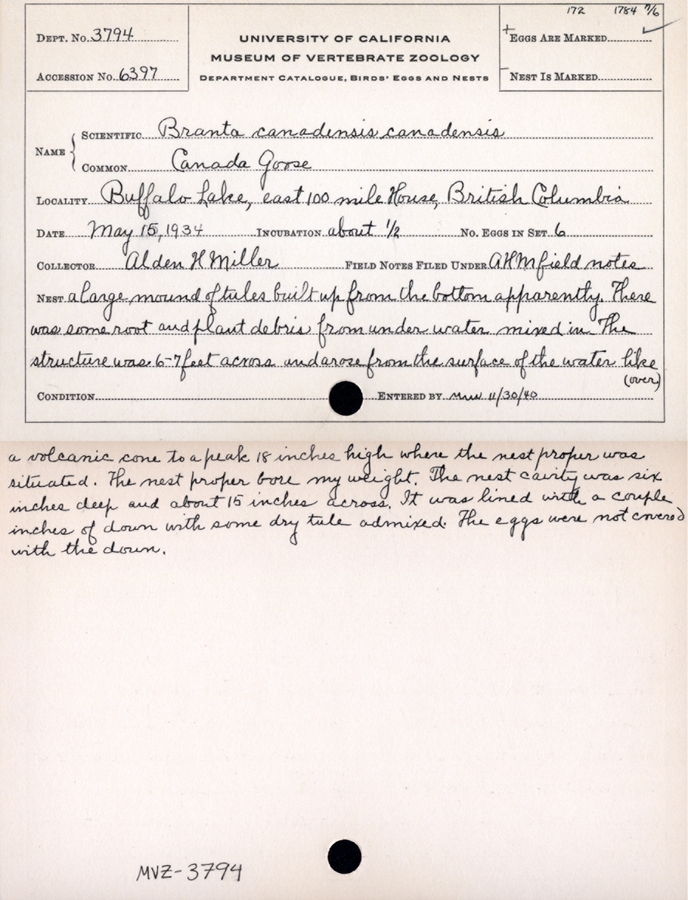 172 1784 7/6
DEPT. NO. 3794
UNIVERSITY OF CALIFORNIA
+ EGGS ARE MARKED ✓
MUSEUM OF VERTEBRATE ZOOLOGY
ACCESSION NO. 6397
DEPARTMENT CATALOGUE, BIRDS' EGGS AND NESTS
– NEST IS MARKED
NAME { SCIENTIFIC Branta canadensis canadensis
COMMON Canada Goose
LOCALITY Buffalo Lake, east 100 mile House, British Columbia
DATE May 15, 1934 INCUBATION about 1/2 NO. EGGS IN SET 6
COLLECTOR Alden H Miller FIELD NOTES FILED UNDER AHM field notes
NEST a large mound of tules built up from the bottom apparently. There
was some root and plant debris from under water mixed in. The
structure was 6-7 feet across and arose from the surface of the water like
(over)
CONDITION ENTERED BY mw 11/30/40
a volcanic cone to a peak 18 inches high where the nest proper was
situated. The nest proper bore my weight. The nest cavity was six
inches deep and about 15 inches across. It was lined with a couple
inches of down with some dry tule admixed. The eggs were not covered
with the down.
MVZ-3794